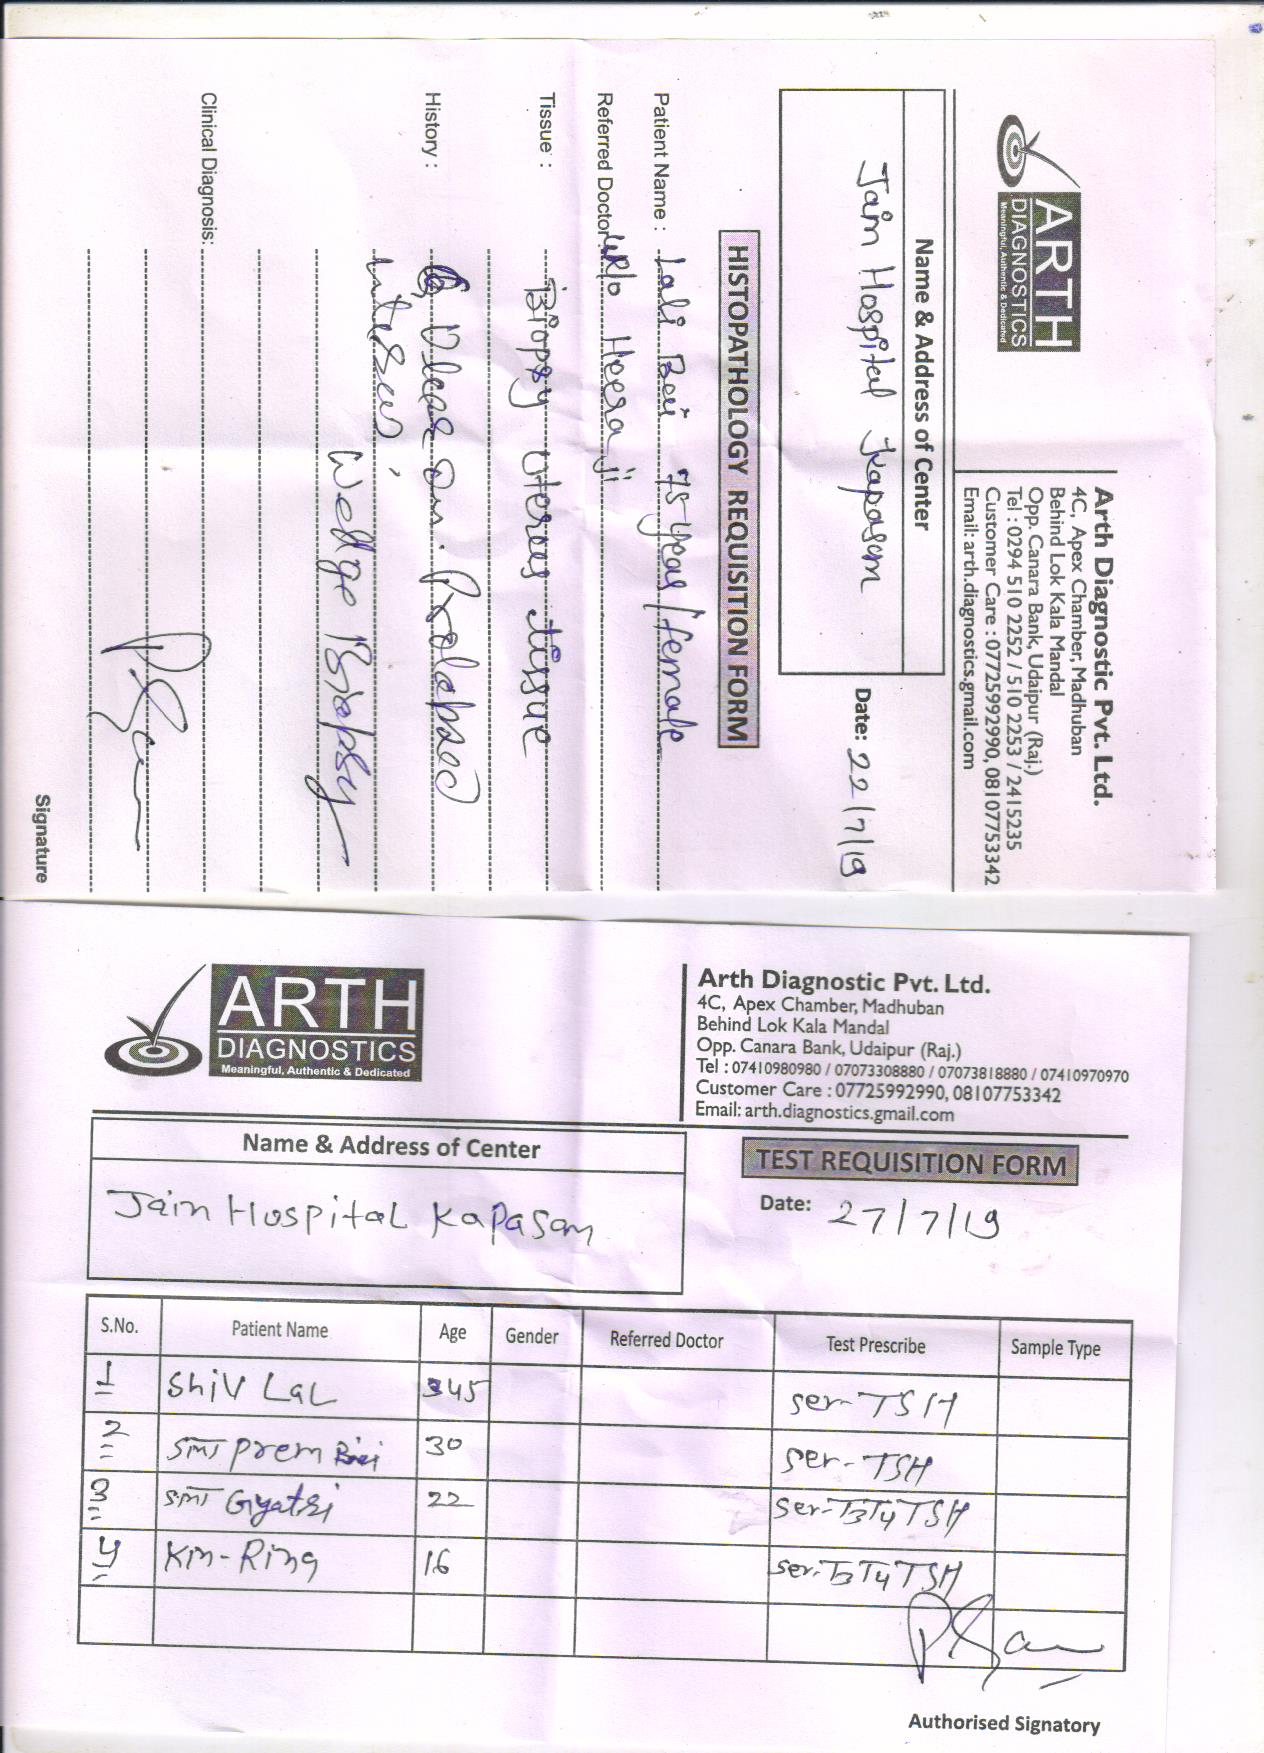 ARTH
DIAGNOSTICS
Meaningful, Authentic & Dedicated
Arth Diagnostic Pvt. Ltd.
4C, Apex Chamber, Madhuban
Behind Lok Kala Mandal
Opp. Canara Bank, Udaipur (Raj.)
Tel : 0294 510 2252 / 510 2253 / 2415235
Customer Care : 07725992990, 08107753342
Email: arth.diagnostics.gmail.com
Name & Address of Center
Jain Hospital Kapasan
Date: 22/7/19
HISTOPATHOLOGY REQUISITION FORM
Patient Name : Lali Bai 75 year / female
Referred Doctor: W/o Heera ji
Tissue : Biopsy Uterus tissue
History : Ulcer on Prolapsed
uterus,
Wedge Biopsy
Clinical Diagnosis:
Signature
ARTH
DIAGNOSTICS
Meaningful, Authentic & Dedicated
Arth Diagnostic Pvt. Ltd.
4C, Apex Chamber, Madhuban
Behind Lok Kala Mandal
Opp. Canara Bank, Udaipur (Raj.)
Tel : 07410980980 / 07073308880 / 07073818880 / 07410970970
Customer Care : 07725992990, 08107753342
Email: arth.diagnostics.gmail.com
Name & Address of Center
Jain Hospital Kapasan
TEST REQUISITION FORM
Date: 27/7/19
S.No. Patient Name Age Gender Referred Doctor Test Prescribe Sample Type
1 Shiv Lal 45 ser-TSH
2 SMT Prem 30 ser-TSH
3 SMT Gyatri 22 ser-T3T4TSH
4 Kin-Ring 16 ser-T3T4TSH
Authorised Signatory